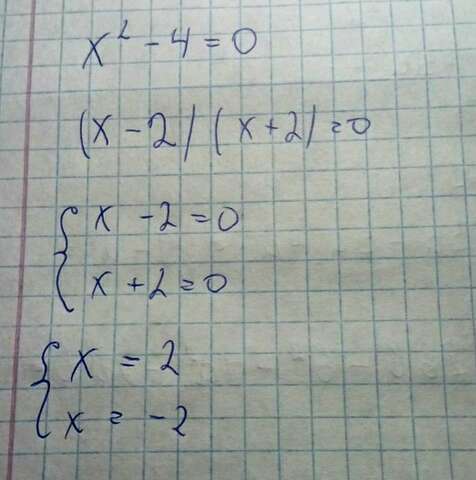 x² - 4 = 0
(x - 2) (x + 2) = 0
{ x - 2 = 0
x + 2 = 0
{ x = 2
x = -2